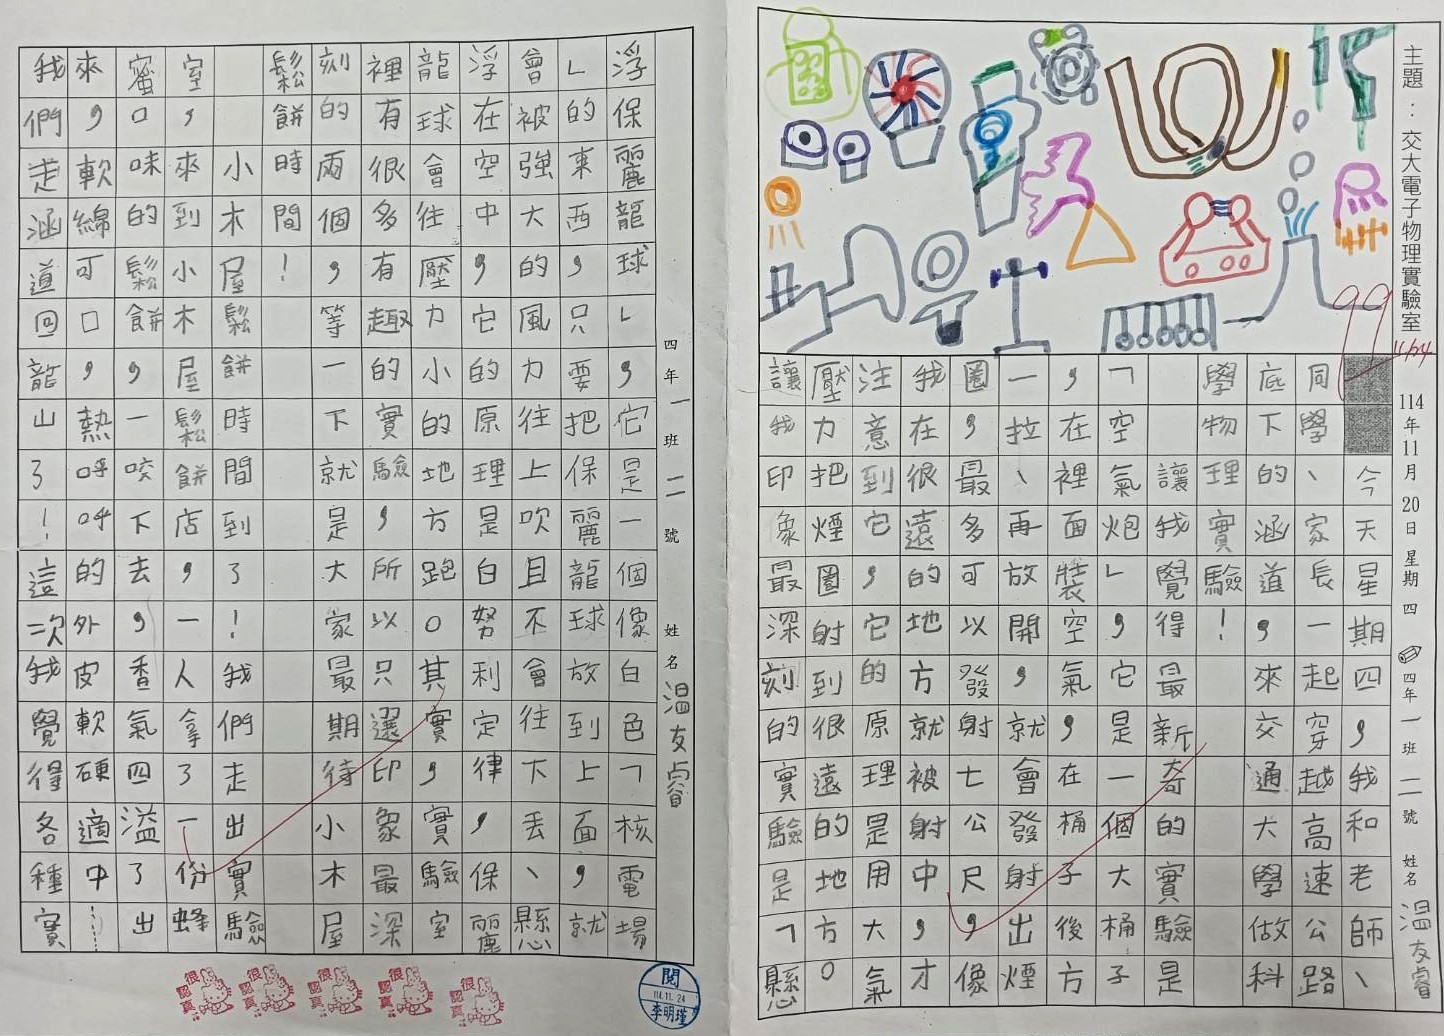 主題：交大電子物理實驗室
99
11/24
114年11月20日星期四 四年一班二號 姓名 溫友睿
今天星期四，我和老師、
同學、家長一起穿越高速公路
底下的涵道，來交通大學做科
學物理實驗！
讓我覺得最新奇的實驗是
「空氣炮」，它是一個大桶子
，在裡面裝空氣，在桶子後方
一拉、再放開，就會發射出煙
圈，最多可以發射七公尺，像
我在很遠的地方就被射中，才
注意到它，它的原理是用大氣
壓力把煙圈射到很遠的地方。
讓我印象最深刻的實驗是「懸
四年一班二號 姓名 溫友睿
浮保麗龍球」，它是一個像白色「核電場
」的東西，只要把保麗龍球放到上面，就
會被強大的風力往上吹且不會往下丟、懸
浮在空中，它的原理是白努利定律，保麗
龍球會往壓力小的地方跑。其實，實驗室
裡有很多有趣的實驗，所以只選印象最深
刻的兩個，等一下就是大家最期待小木屋
鬆餅時間！
小木屋鬆餅時間到了！我們走出實驗
室，來到小木屋鬆餅店，一人拿了一份蜂
蜜口味的鬆餅，一咬下去，香氣四溢了出
來，軟綿可口，熱呼呼的外皮軟硬適中……
我們走涵道回龍山了！這次我覺得各種實
很認真
很認真
很認真
很認真
很認真
閱
114.11.24
李明瑾